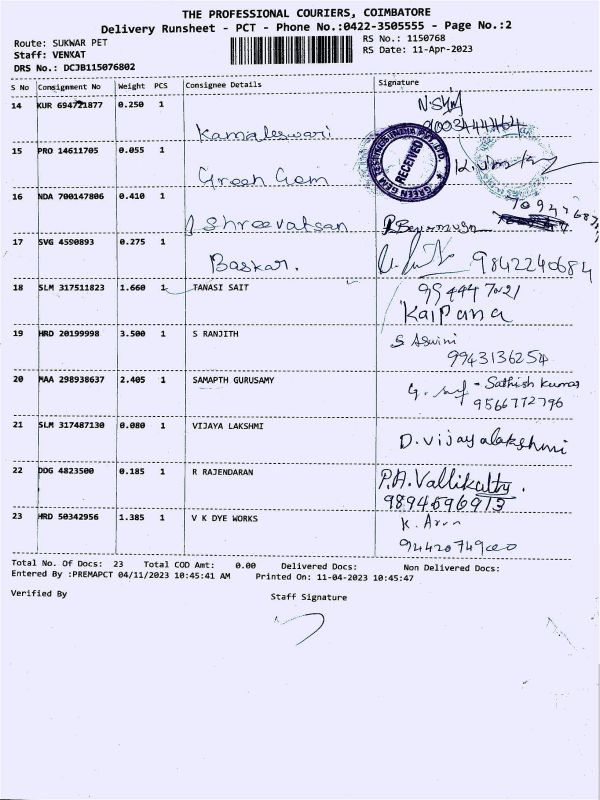 THE PROFESSIONAL COURIERS, COIMBATORE
Delivery Runsheet - PCT - Phone No.:0422-3505555 - Page No.:2
Route: SUKWAR PET
RS No.: 1150768
Staff: VENKAT
RS Date: 11-Apr-2023
DRS No.: DCJB115076802
S No Consignment No Weight PCS Consignee Details Signature
14 KUR 694721877 0.250 1 Kamaleswari
15 PRO 14611705 0.055 1 Green Gem
GREEN GEM TESTING INDIA PVT LTD
RECEIVED
16 NDA 700147806 0.410 1 Shreevatsan
17 SVG 4590893 0.275 1 Baskar. 9842240684
18 SLM 317511823 1.660 1 TANASI SAIT
Kalpana
19 HRD 20199998 3.500 1 S RANJITH S Aswini
9943136254
20 MAA 298938637 2.405 1 SAMAPTH GURUSAMY - Sathish Kumar
9566772796
21 SLM 317487130 0.080 1 VIJAYA LAKSHMI D.vijayalakshmi
22 DDG 4823500 0.185 1 R RAJENDARAN P.A.Vallikutty.
9894596913
23 HRD 50342956 1.385 1 V K DYE WORKS K. Arun
Total No. Of Docs: 23 Total COD Amt: 0.00 Delivered Docs: Non Delivered Docs:
Entered By :PREMAPCT 04/11/2023 10:45:41 AM Printed On: 11-04-2023 10:45:47
Verified By
Staff Signature